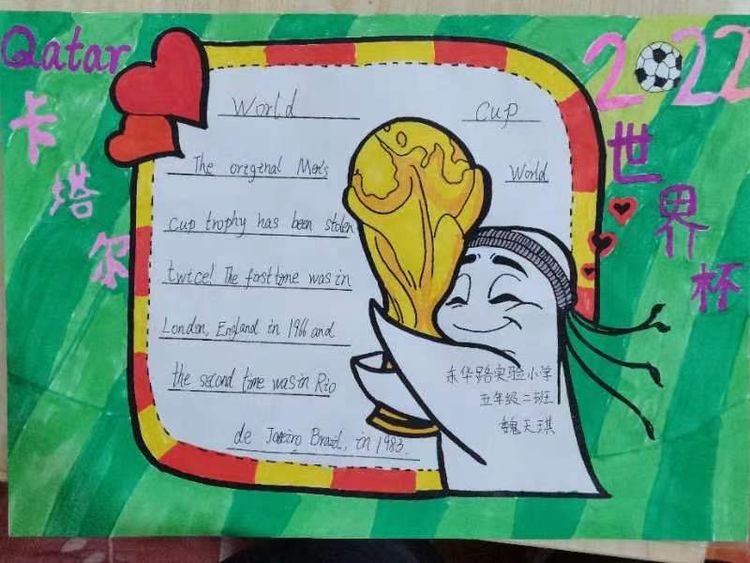 Qatar
卡塔尔
2022
世界杯
World Cup
The original Men's World
cup trophy has been stolen
twice! The first time was in
London, England in 1966 and
the second time was in Rio
de Janeiro Brazil, in 1983.
东华路实验小学
五年级二班
魏天琪